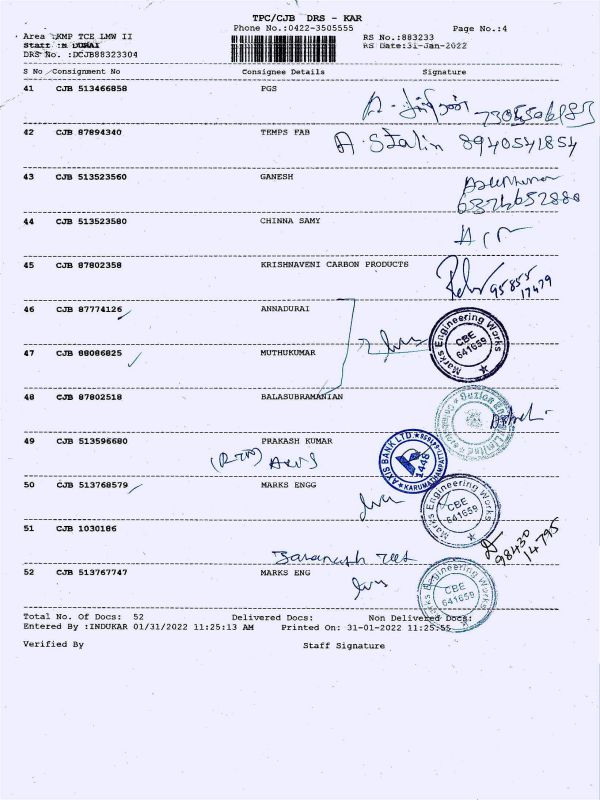 TPC/CJB DRS - KAR
Phone No.:0422-3505555
Page No.:4
Area :KMP TCE LMW II
RS No.:883233
Staff :M DURAI
RS Date:31-Jan-2022
DRS No. :DCJB88323304
S No Consignment No Consignee Details Signature
41 CJB 513466858 PGS
42 CJB 87894340 TEMPS FAB
A. Stalin 8940541854
43 CJB 513523560 GANESH
6374652880
44 CJB 513523580 CHINNA SAMY
45 CJB 87802358 KRISHNAVENI CARBON PRODUCTS
95855
17479
46 CJB 87774126 ANNADURAI
Marks Engineering Works
CBE
641659
47 CJB 88086825 MUTHUKUMAR
48 CJB 87802518 BALASUBRAMANIAN
49 CJB 513596680 PRAKASH KUMAR
AXIS BANK LTD.
1448
50 CJB 513768579 MARKS ENGG
Marks Engineering Works
CBE
641659
51 CJB 1030186
98430
14795
52 CJB 513767747 MARKS ENG
Marks Engineering Works
CBE
641659
Total No. Of Docs: 52 Delivered Docs: Non Delivered Docs:
Entered By :INDUKAR 01/31/2022 11:25:13 AM Printed On: 31-01-2022 11:25:55
Verified By Staff Signature